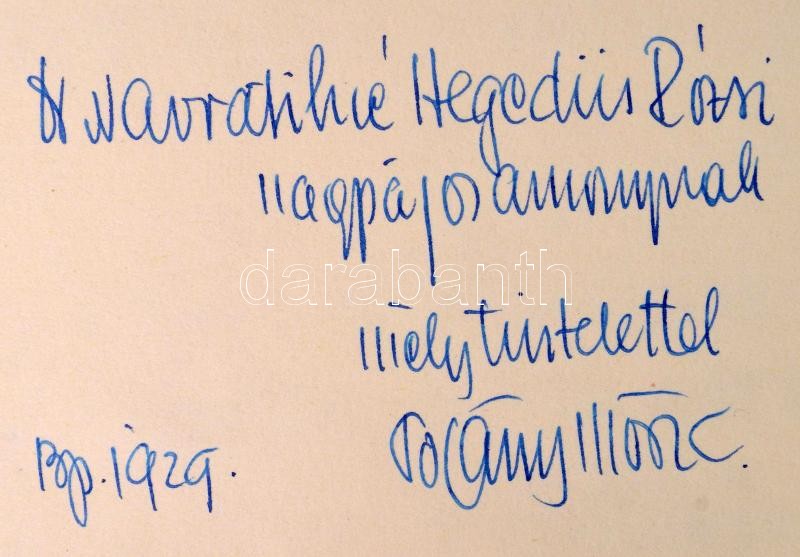 Navratilné Hegedüs Rózsi
nagyságos asszonynak
darabanth
mély tisztelettel
Bp. 1929. Pogány Móric.